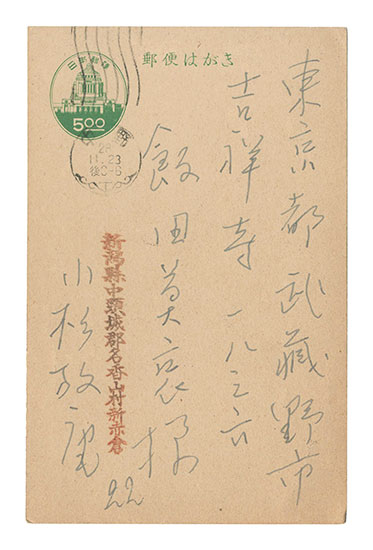 郵便はがき
東京都武蔵野市
吉祥寺一八三六
飯田莫哀様
新潟縣中頸城郡名香山村新赤倉
小杉放庵
22
日本郵便
5.00
28
11.23
後0-6